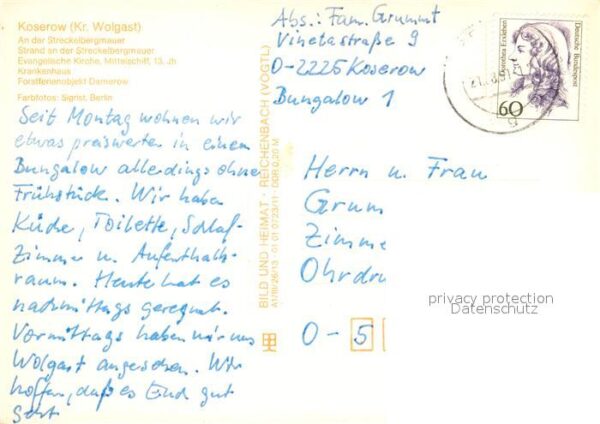 Koserow (Kr. Wolgast)
An der Streckelbergmauer
Strand an der Streckelbergmauer
Evangelische Kirche, Mittelschiff, 13. Jh
Krankenhaus
Forstferienobjekt Damerow
Farbfotos: Sigrist, Berlin
Seit Montag wohnen wir
etwas preiswerter in einem
Bungalow allerdings ohne
Frühstück. Wir haben
Küche, Toilette, Schlaf-
zimmer u. Aufenthalts-
raum. Heute hat es
nachmittags geregnet.
Vormittags haben wir uns
Wolgast angesehen. Wir
hoffen, daß es Euch gut
geht
BILD UND HEIMAT · REICHENBACH (VOGTL)
A1/III/26/13 01 01 0723/11 DDR 0,20 M
Abs.: Fam. Grummt
Vinetastraße 9
O-2225 Koserow
Bungalow 1
Dorothea Erxleben
Deutsche Bundespost
60
Herrn u. Frau
Grum
Zimme
Ohrdru
O - 5
privacy protection
Datenschutz